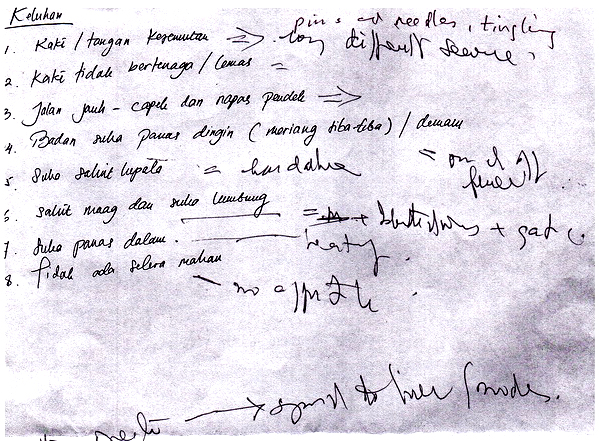 Keluhan
pins and needles, tingling
1. Kaki / tangan kesemutan
2. Kaki tidak bertenaga / lemas =
3. Jalan jauh - capek dan napas pendek
4. Badan suka panas dingin (meriang tiba-tiba) / demam
= on & off fever
5. Suka sakit kepala = headache
6. sakit maag dan suka kembung =
7. Suka panas dalam.
8. Tidak ada selera makan
no appetite
spread to liver / nodes.